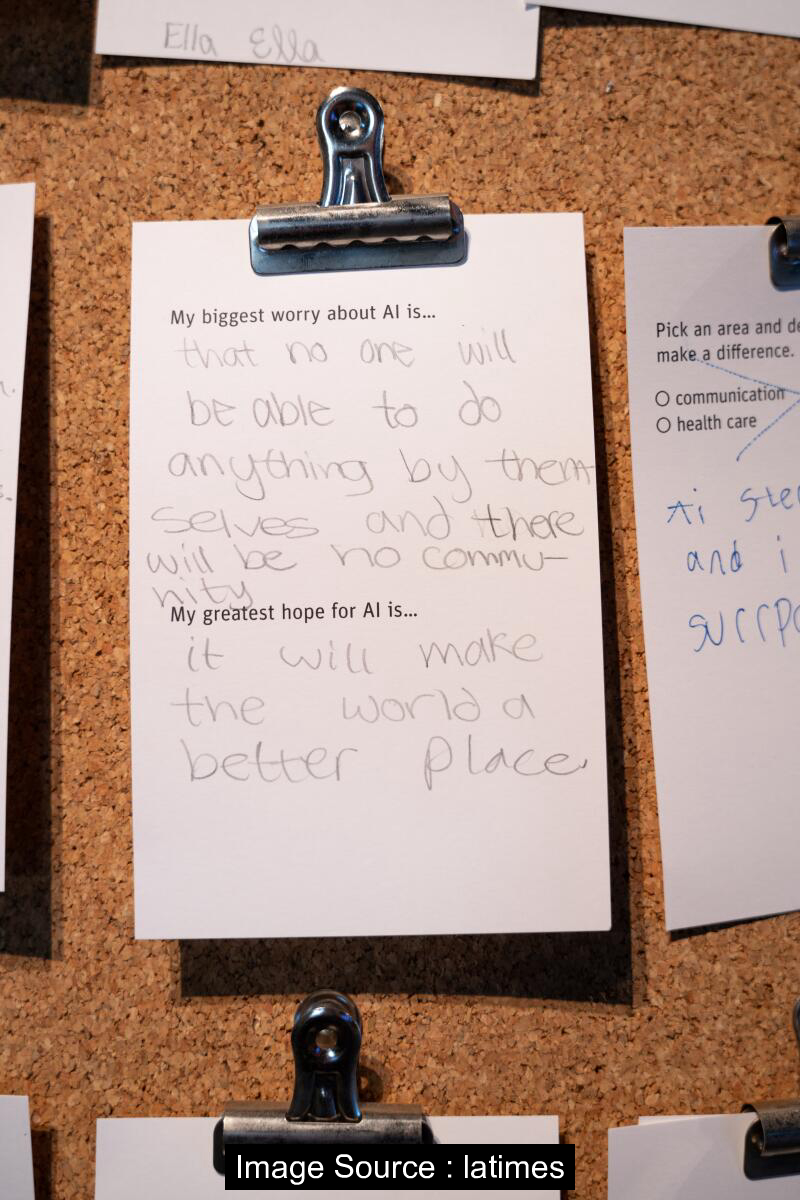 Ella Ella
My biggest worry about AI is...
that no one will
be able to do
anything by them
selves and there
will be no commu-
nity
My greatest hope for AI is...
it will make
the world a
better place.
Pick an area and de
make a difference.
communication
health care
Ai ste
and i
surrpo
Image Source : latimes